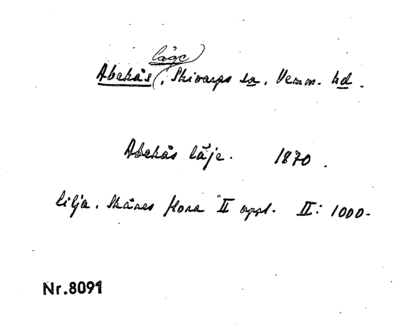 läge
Abekås, Skivarps sn, Vemm. hd.
Abekås läje. 1870.
Lilja. Skånes flora II uppl. II: 1000-
Nr.8091